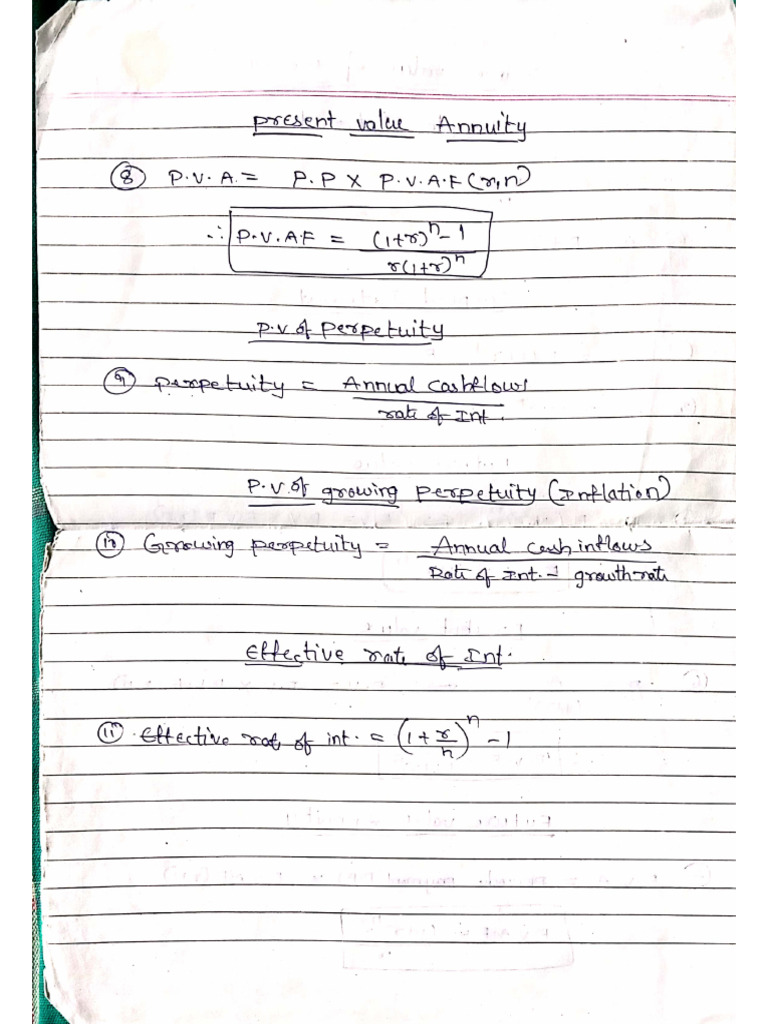 Present value Annuity
⑧ P.V.A. = P.P X P.V.A.F(r,n)
∴ P.V.A.F = (1+r)^n - 1
r(1+r)^n
P.V. of Perpetuity
⑨ Perpetuity = Annual Cashflows
rate of Int.
P.V. of growing perpetuity (Inflation)
⑩ Growing perpetuity = Annual cash inflows
Rate of Int. - growth rate
Effective rate of Int.
⑪ Effective rat of int. = (1 + r/n)^n - 1